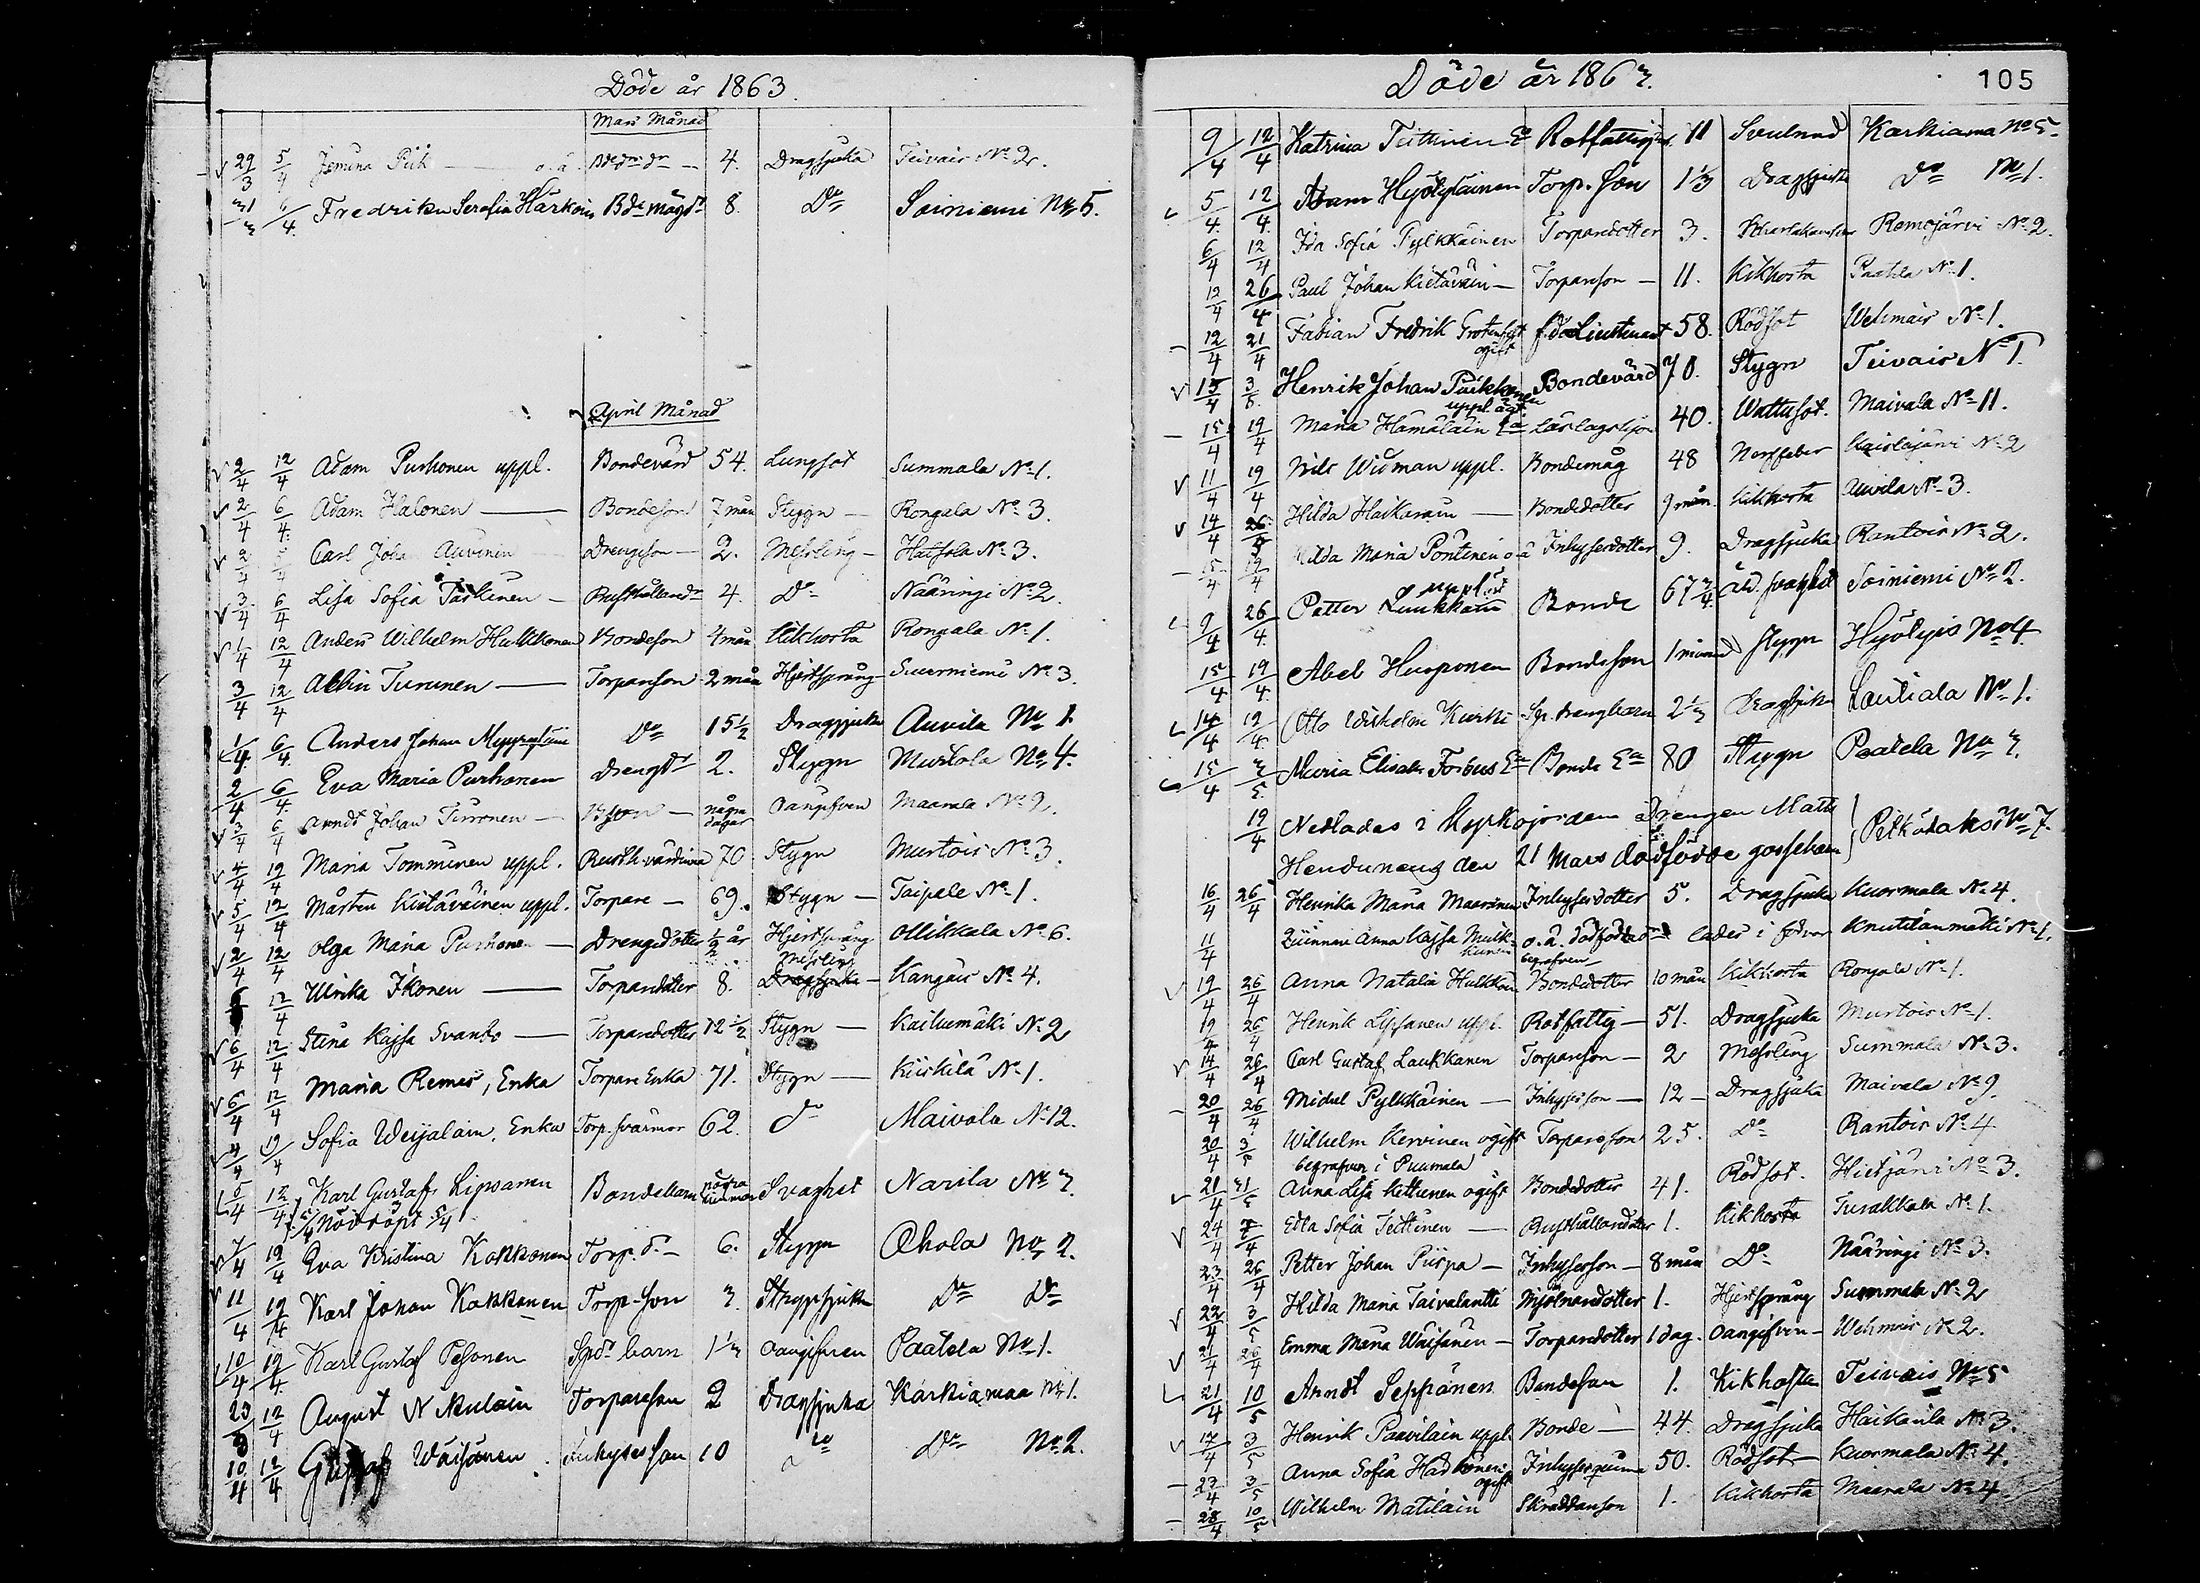 Döde år 1863.
Mars Månad
29/3 5/4 Jemina Piik — o.ä. Bdedr dr — 4. Dragsjuka Teivais No 2.
31/3 6/4 Fredrika Serafia Härköin Bde mågdr 8. Do Soiniemi No 5.
April Månad
2/4 12/4 Adam Purhonen uppl. Bondevärd 54. Lungsot Summala No 1.
2/4 6/4 Adam Halonen — Bondeson 7 mån Stygn — Rongala No 3.
2/4 5/4 Carl Johan Auvinen Drengson — 2. Messling — Haisola No 3.
3/4 6/4 Lisa Sofia Taskinen — Rusthålland 4. Do Nääringi No 2.
1/4 12/4 Anders Wilhelm Hulkkonen Bondeson 4 mån Kikhosta Rongala No 1.
3/4 12/4 Albin Turunen — Torparson 2 mån Hjertsprång Suurniemi No 3.
1/4 6/4 Anders Johan Do 15 1/2 Dragsjuka Auvila No 1.
2/4 6/4 Eva Maria Purhonen Drengdr 2. Stygn Murtola No 4.
3/4 6/4 Arndt Johan Turunen — Bson — några dagar Oangifven Maarala No 2.
4/4 19/4 Maria Tommunen uppl. Rusth. värdinna 70 Stygn Murtois No 3.
5/4 12/4 Mårten Kietäväinen uppl. Torpare — 69. Stygn — Taipale No 1.
2/4 12/4 Olga Maria Purhonen — Drengdotter 1/2 år Hjertsprång Ollikkala No 6.
6/4 12/4 Ulrika Ikonen — Torpardotter 8. Dragsjuka Messling — Kangais No 4.
6/4 12/4 Stina Kajsa Svanbo — Torpardotter 12 1/2 Stygn — Kaihumäki No 2
6/4 12/4 Maria Remes, Enka Torpare Enka 71. Stygn — Kiiskilä No 1.
4/4 19/4 Sofia Weijalain, Enka Torp. svärmor 62. do Maivala No 12.
5/4 12/4 Karl Gustaf Lipsanen Bondebarn några timmar Svaghet Narila No 3.
5/4 Nöddöpt 5/4
7/4 19/4 Eva Kristina Kokkonen Torp. d. — 6. Stygn Ahola No 2.
11/4 19/4 Karl Johan Kokkonen Torp. son 3. Do Do
10/4 19/4 Karl Gustaf Pesonen Spdr barn 1 1/3 oangifven Paatela No 1.
12/4 August N Torparson 2 Dragsjuka Karkiamaa No 1.
10/4 12/4 Gustaf Wäisänen Inhysesson 10 do Do No 2.
Döde år 1863. 105
9/4 12/4 Katrina Tuttinen Ea Rotfattig 71 Svulnad Karkiamaa No 5.
5/4 12/4 Adam Hyötyläinen Torp. son 1 1/3 Dragsjuka Do No 1.
6/4 12/4 Ida Sofia Pylkkäinen Torpardotter 3. Remojärvi No 2.
12/4 26/4 Paul Johan Kietäväin — Torparson — 11. Kikhosta Paatela No 1.
12/4 21/4 Fabian Fredrik Grotenfelt ogift f.d. Lieutenant 58. Rödsot Wehmais No 1.
13/4 3/5 Henrik Johan Puikkonen Bondevärd 70. Stygn Teivais No 1.
15/4 19/4 Maria Hämäläin Ea 40. Wattusot. Maivala No 11.
11/4 19/4 Nils Widman uppl. Bondemåg 48 Nervfeber Kaislajärvi No 2
14/4 26/4 Hilda Haikarain — Bondedotter 9 mån. Kikhosta Auvila No 3.
15/4 19/4 Hilda Maria Pöntinen o.ä Inhysesdotter 9. Dragsjuka Rantois No 2.
9/4 26/4 Petter Luukkain uppl. Bonde 67 3/4 ål. svaghet Soiniemi No 2.
15/4 19/4 Abel Husponen Bondeson 1 månad Stygn Hyötyis No 4
14/4 19/4 Otto Wilhelm Kurki Sp. drengbarn 2 1/3 Dragsjuka Lautiala No 1.
15/4 3/5 Maria Elisab. Forbus Ea Bonde Ea 80 Stygn Paatela No 3.
19/4 Nedlades i Kyrkojorden Drengen Matts
Hendunens den 21 Mars dödfödde gossebarn } Petkälaksi No 7.
16/4 26/4 Henrika Maria Maaranen Inhysesdotter 5. Dragsjuka Kuormala No 4.
11/4 Anna Kajsa o.ä. dödfödda lades i Knutilanmäki No 1.
19/4 26/4 Anna Natalia Hulkkoin Bondedotter 10 mån Kikhosta Rongala No 1.
19/4 26/4 Henrik Lipsanen uppl. Rotfattig — 51. Dragsjuka Murtois No 1.
14/4 26/4 Carl Gustaf Laukkanen Torparson — 2 Messling Summala No 3.
20/4 26/4 Mickel Pylkkäinen — Inhysesson — 12 — Dragsjuka Maivala No 9.
20/4 3/5 Wilhelm Kervinen ogift Torparson 25. Do Rantois No 4
begrafven i Puumala
21/4 31/5 Anna Lisa Kettunen ogift Bondedotter 41. Rödsot. Hietjärvi No 3.
24/4 Edla Sofia Teittinen — Rusthållaredotter 1. Kikhosta Turakkala No 1.
23/4 26/4 Petter Johan Piispa — Inhysesson — 8 mån Do Nääringi No 3.
22/4 3/5 Hilda Maria Taivalantti Mjölnardotter 1. Hjertsprång Summala No 2
21/4 26/4 Emma Maria Wäisänen — Torpardotter 1 dag. Oangifven — Wehmais No 2.
21/4 10/5 Arndt Seppänen Bondeson 1. Kikhosta Teivais No 5
17/4 3/5 Henrik Paavilain uppl. Bonde — 44. Dragsjuka Haikarila No 3.
23/4 3/5 Anna Sofia ogift Inhysespiga 50. Rödsot — Kuormala No 4.
28/4 10/5 Wilhelm Matilain Skräddarson 1. Kikhosta Maarala No 4